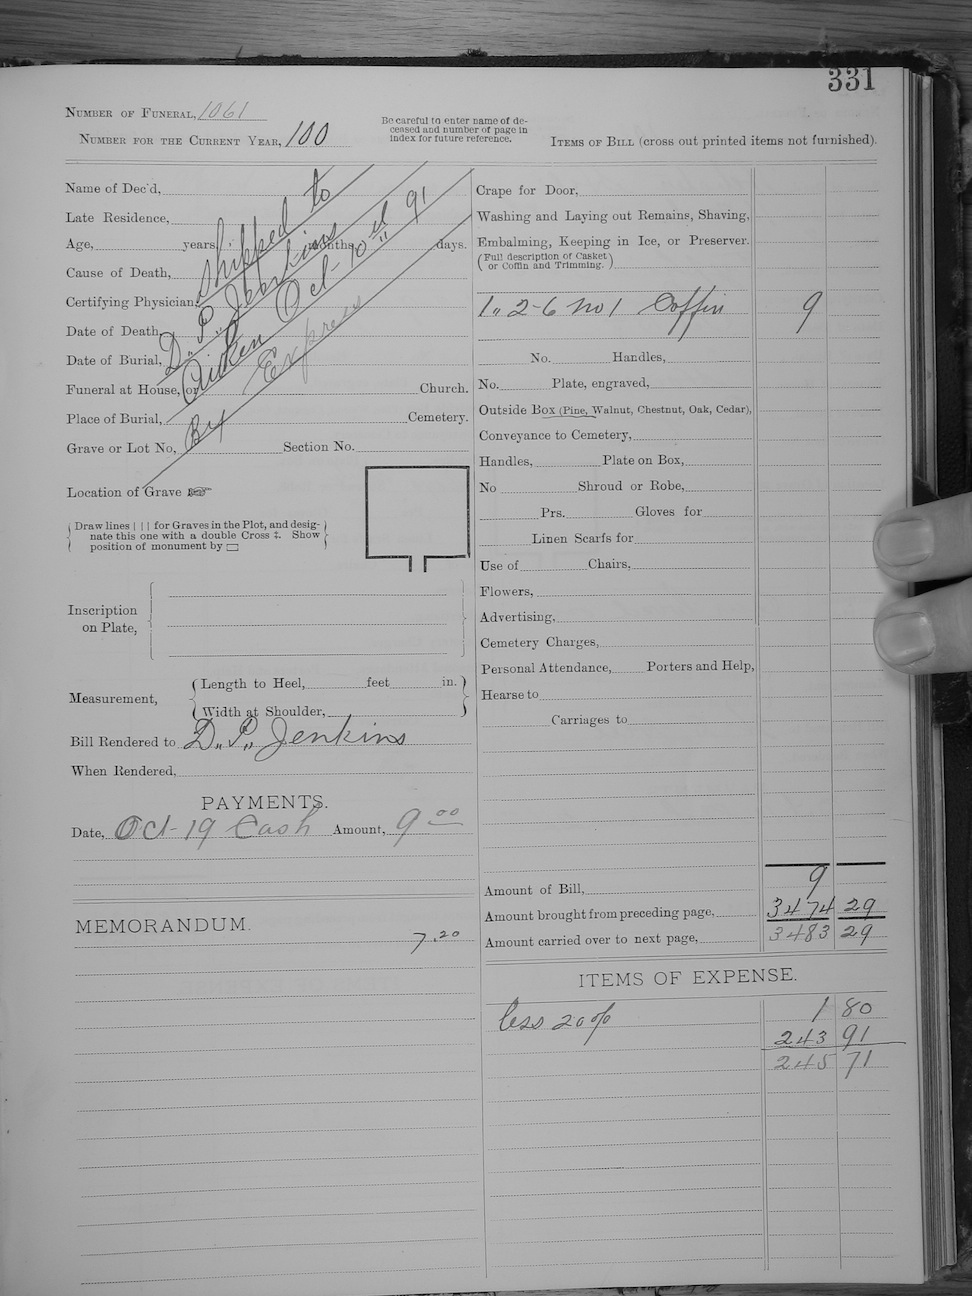 331
Number of Funeral, 1061
Number for the Current Year, 100
Be careful to enter name of de-
ceased and number of page in
index for future reference.
Items of Bill (cross out printed items not furnished).
Name of Dec'd,
Late Residence,
Age, years, months, days.
Cause of Death,
Certifying Physician,
Date of Death,
Date of Burial,
Funeral at House, or Church.
Place of Burial, Cemetery.
Grave or Lot No, Section No.
Shipped to
D. P. Jenkins
Aiken Oct 10 91
By Express
Location of Grave
Draw lines | | | for Graves in the Plot, and desig-
nate this one with a double Cross ‡. Show
position of monument by ▭
Inscription
on Plate,
Measurement,
Length to Heel, feet in.
Width at Shoulder,
Bill Rendered to D. P. Jenkins
When Rendered,
PAYMENTS.
Date, Oct 19 Cash Amount, 9 00
MEMORANDUM.
7.20
Crape for Door,
Washing and Laying out Remains, Shaving,
Embalming, Keeping in Ice, or Preserver.
(Full description of Casket
or Coffin and Trimming.)
1 " 2-6 No 1 Coffin 9
No. Handles,
No. Plate, engraved,
Outside Box (Pine, Walnut, Chestnut, Oak, Cedar),
Conveyance to Cemetery,
Handles, Plate on Box,
No Shroud or Robe,
Prs. Gloves for
Linen Scarfs for
Use of Chairs,
Flowers,
Advertising,
Cemetery Charges,
Personal Attendance, Porters and Help,
Hearse to
Carriages to
Amount of Bill, 9
Amount brought from preceding page, 3474 29
Amount carried over to next page, 3483 29
ITEMS OF EXPENSE.
less 20% 1 80
243 91
245 71